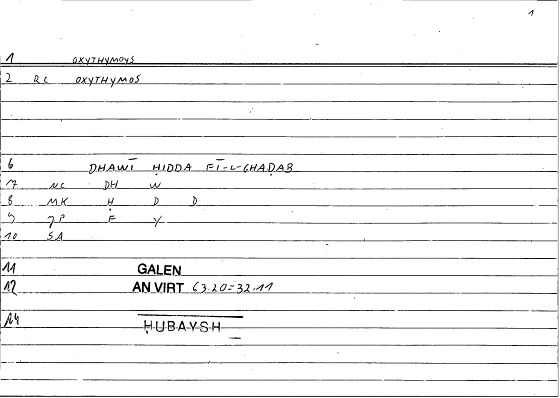 1
1 OXYTHYMOYS
2 RC OXYTHYMOS
6 DHAWĪ ḤIDDA FĪ-L-GHADAB
7 NC DH W
8 MK Ḥ D D
9 JP F Y
10 SA
11 GALEN
12 AN VIRT 63.20=32.11
14 ḤUBAYSH